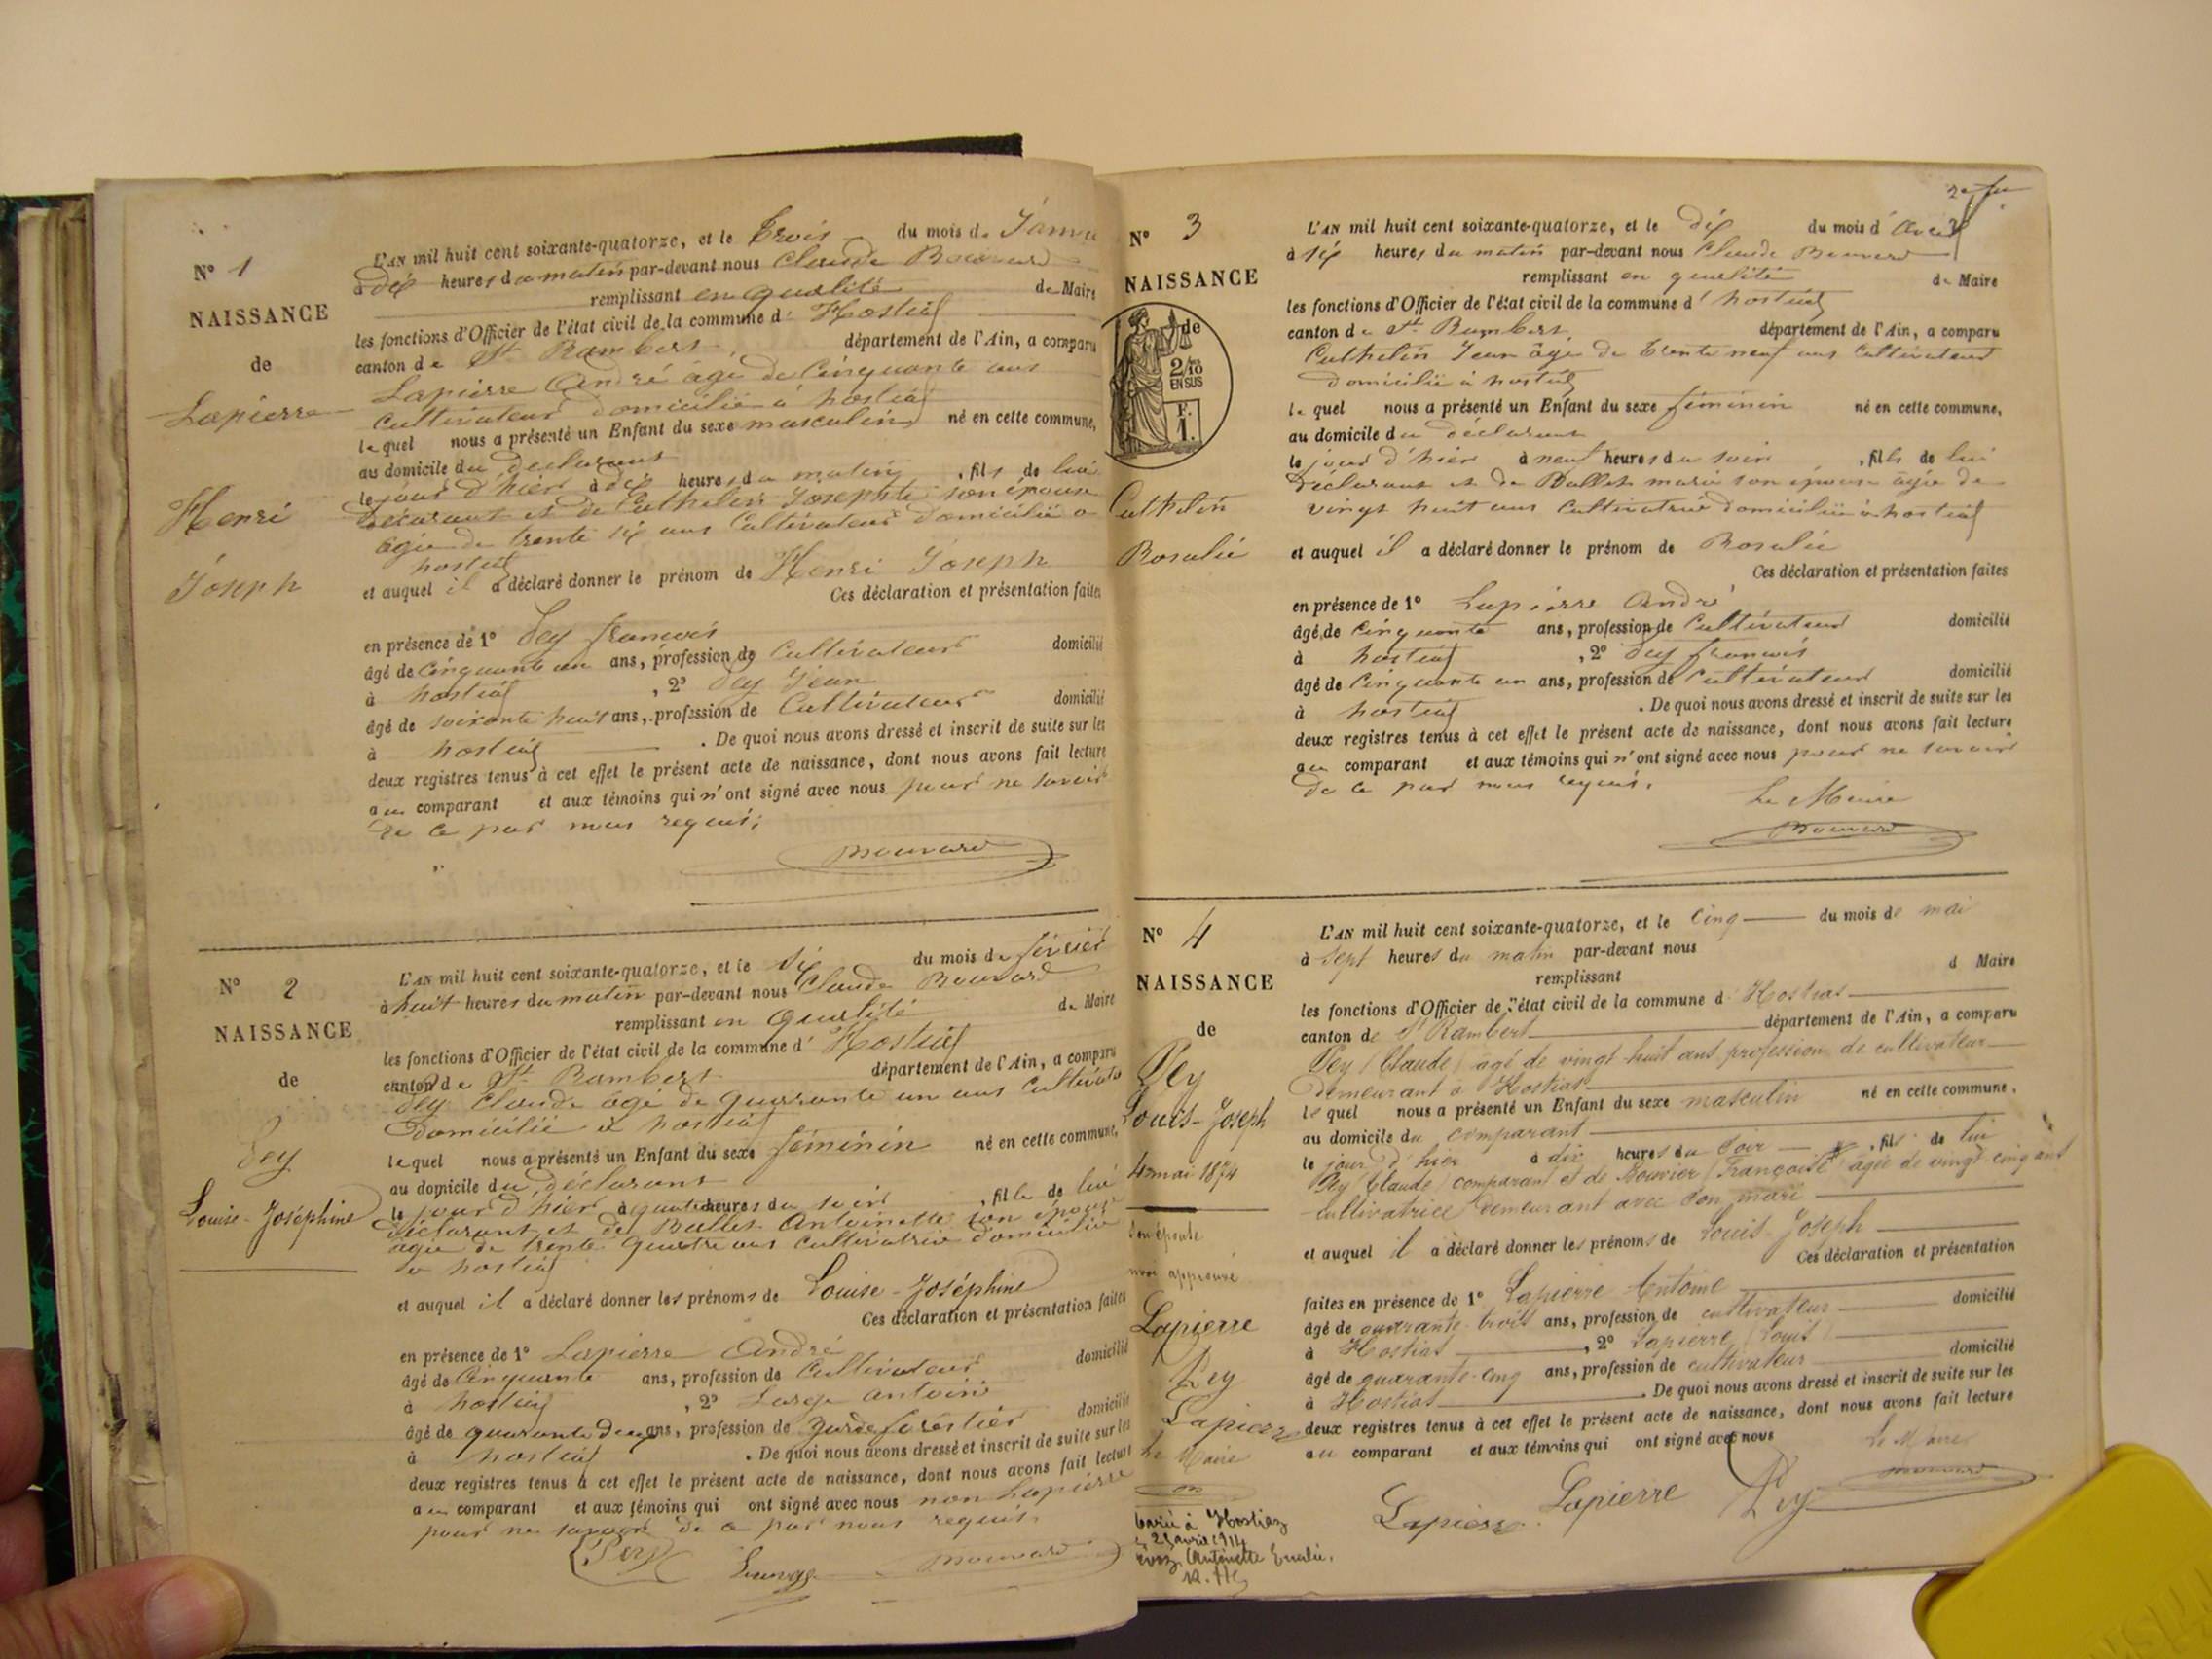 N° 1
NAISSANCE
de
Lapierre
Henri
Joseph
L'AN mil huit cent soixante-quatorze, et le trois du mois de Janvi
à dix heures du matin par-devant nous Claude Bouvard
remplissant en qualité de Maire
les fonctions d'Officier de l'état civil de la commune d' Hostiaz
canton de St Rambert, département de l'Ain, a comparu
Lapierre André agé de Cinquante ans
Cultivateur domicilié à hostiaz
lequel nous a présenté un Enfant du sexe masculin né en cette commune,
au domicile du declarant
le jour d'hier à dix heures du matin, fils de lui
declarant et de Cuthelin Josephte son épouse
agée de trente six ans Cultivateur domicilié a
hostiaz
et auquel il a déclaré donner le prénom de Henri Joseph
Ces déclaration et présentation faites
en présence de 1° Dey francois
âgé de Cinquante un ans, profession de Cultivateur domicilié
à hostiaz, 2° Dey Jean
âgé de soixante huit ans, profession de Cultivateur domicilié
à hostiaz. De quoi nous avons dressé et inscrit de suite sur les
deux registres tenus à cet effet le présent acte de naissance, dont nous avons fait lecture
au comparant et aux témoins qui n'ont signé avec nous pour ne savoir
de ce par nous requis;
Bouvard
N° 2
NAISSANCE
de
Dey
Louise-Joséphine
L'AN mil huit cent soixante-quatorze, et le six du mois de février
à huit heures du matin par-devant nous Claude Bouvard
remplissant en qualité de Maire
les fonctions d'Officier de l'état civil de la commune d' Hostiaz
canton de St Rambert département de l'Ain, a comparu
Dey Claude age de quarante un ans Cultivate
domicilié à hostiaz
lequel nous a présenté un Enfant du sexe féminin né en cette commune,
au domicile du déclarant
le jour d'hier à quatre heures du soir, fille de lui
déclarant et de Ballet Antoinette son épouse
agée de trente quatre ans cultivatrice domicilié
a hostiaz
et auquel il a déclaré donner les prénoms de Louise-Joséphine
Ces déclaration et présentation faites
en présence de 1° Lapierre André
âgé de Cinquante ans, profession de Cultivateur domicilié
à hostiaz, 2° Large antoine
âgé de quarante deux ans, profession de garde forestier domicilié
à hostiaz. De quoi nous avons dressé et inscrit de suite sur les
deux registres tenus à cet effet le présent acte de naissance, dont nous avons fait lecture
au comparant et aux témoins qui ont signé avec nous non Lapierre
pour ne savoir de ce par nous requis
Dey Large Bouvard
N° 3
NAISSANCE
de
2/10
EN SUS
F.
1.
Cuthelin
Rosalie
L'AN mil huit cent soixante-quatorze, et le dix du mois d'avril
à six heures du matin par-devant nous Claude Bouvard
remplissant en qualité de Maire
les fonctions d'Officier de l'état civil de la commune d' hostiaz
canton de St Rambert département de l'Ain, a comparu
Cuthelin Jean âgé de trente neuf ans Cultivateur
domicilié à hostiaz
lequel nous a présenté un Enfant du sexe féminin né en cette commune,
au domicile du déclarant
le jour d'hier à neuf heures du soir, fille de lui
déclarant et de Ballet marie son épouse âgée de
vingt huit ans Cultivatrice domicilié à hostiaz
et auquel il a déclaré donner le prénom de Rosalie
Ces déclaration et présentation faites
en présence de 1° Lapierre André
âgé de Cinquante ans, profession de Cultivateur domicilié
à hostiaz, 2° Dey francois
âgé de Cinquante un ans, profession de Cultivateur domicilié
à hostiaz. De quoi nous avons dressé et inscrit de suite sur les
deux registres tenus à cet effet le présent acte de naissance, dont nous avons fait lecture
au comparant et aux témoins qui n'ont signé avec nous pour ne savoir
de ce par nous requis.
Le Maire
Bouvard
N° 4
NAISSANCE
de
Dey
Louis-Joseph
4 mai 1874
son épouse
approuvé
Lapierre
Dey
Lapierre
Le Maire
Marié à Hostiaz
avril 1914
Antoinette
L'AN mil huit cent soixante-quatorze, et le cinq du mois de mai
à sept heures du matin par-devant nous
remplissant d Maire
les fonctions d'Officier de l'état civil de la commune d Hostias
canton de St Rambert département de l'Ain, a comparu
Dey (Claude) agé de vingt-huit ans profession de cultivateur
demeurant à Hostias
lequel nous a présenté un Enfant du sexe masculin né en cette commune,
au domicile du comparant
le jour d'hier à dix heures du soir, fils de lui
Dey (Claude) comparant et de Bouvier (Françoise) agée de vingt-cinq ans
cultivatrice demeurant avec son mari
et auquel il a déclaré donner les prénoms de Louis-Joseph
Ces déclaration et présentation
faites en présence de 1° Lapierre Antoine
âgé de quarante-trois ans, profession de cultivateur domicilié
à Hostias, 2° Lapierre (Louis)
âgé de quarante-cinq ans, profession de cultivateur domicilié
à Hostias. De quoi nous avons dressé et inscrit de suite sur les
deux registres tenus à cet effet le présent acte de naissance, dont nous avons fait lecture
au comparant et aux témoins qui ont signé avec nous
Le Maire
Lapierre Lapierre Dey Bouvard